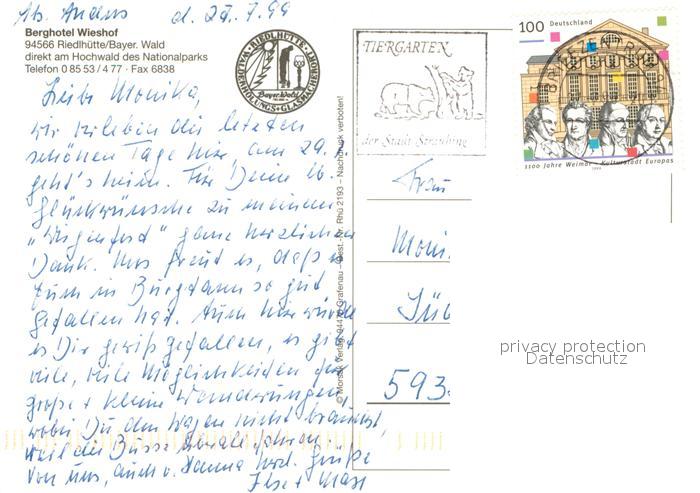 Ab. Anders d. 25.7.99
Berghotel Wieshof
94566 Riedlhütte/Bayer. Wald
direkt am Hochwald des Nationalparks
Telefon 0 85 53 / 4 77 · Fax 6838
RIEDLHÜTTE
WALDERHOLUNGS-GLASMACHERORT
Bayer. Wald
TIERGARTEN
der Stadt Straubing
100 Deutschland
1100 Jahre Weimar - Kulturstadt Europas
1999
Liebe Monika,
wir erleben die letzten
schönen Tage hier, am 29.7.
geht's heim. Für Deine lb.
Glückwünsche zu meinem
"Wiegenfest" ganz herzlichen
Dank. Uns freut es, daß es
Euch in so gut
gefallen hat. Auch hier würde
es Dir gewiß gefallen, es gibt
viele, viele Möglichkeiten für
große + kleine Wanderungen
wobei Du den Wagen nicht brauchst,
weil die Busse überall fahren.
Von uns, auch v. Hanna herzl. Grüße
Ilse + Max
© Morsak Verlag, 94476 Grafenau – Best.-Nr. Rhü 2193 – Nachdruck verboten!
Frau
Moni
593
privacy protection
Datenschutz